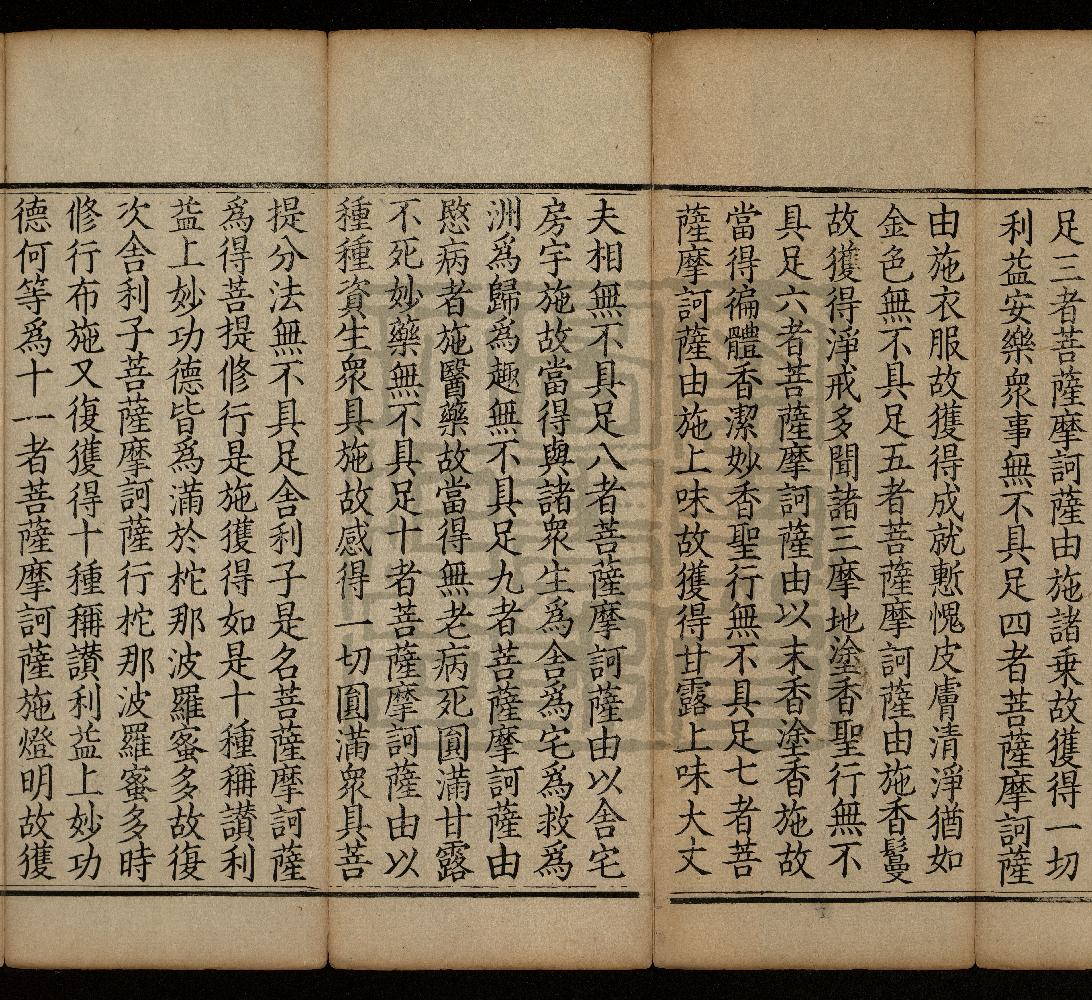 足三者菩薩摩訶薩由施諸乗故獲得一切
利益安樂衆事無不具足四者菩薩摩訶薩
由施衣服故獲得成就慙愧皮膚清淨猶如
金色無不具足五者菩薩摩訶薩由施香鬘
故獲得淨戒多聞諸三摩地塗香聖行無不
具足六者菩薩摩訶薩由以末香塗香施故
當得徧體香潔妙香聖行無不具足七者菩
薩摩訶薩由施上味故獲得甘露上味大丈
夫相無不具足八者菩薩摩訶薩由以舍宅
房宇施故當得與諸衆生爲舍爲宅爲救爲
洲爲歸爲趣無不具足九者菩薩摩訶薩由
愍病者施醫藥故當得無老病死圓滿甘露
不死妙藥無不具足十者菩薩摩訶薩由以
種種資生衆具施故感得一切圓滿衆具菩
提分法無不具足舍利子是名菩薩摩訶薩
爲得菩提修行是施獲得如是十種稱讃利
益上妙功德皆爲滿於柁那波羅蜜多故復
次舍利子菩薩摩訶薩行柁那波羅蜜多時
修行布施又復獲得十種稱讃利益上妙功
德何等爲十一者菩薩摩訶薩施燈明故獲